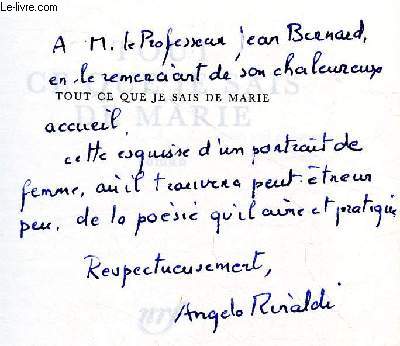 Le-livre.com
A M. le Professeur Jean Bernard,
en le remerciant de son chaleureux
TOUT CE QUE JE SAIS DE MARIE
accueil,
cette esquisse d'un portrait de
femme, où il trouvera peut-être un
peu, de la poésie qu'il aime et pratique
Respectueusement,
Angelo Rinaldi